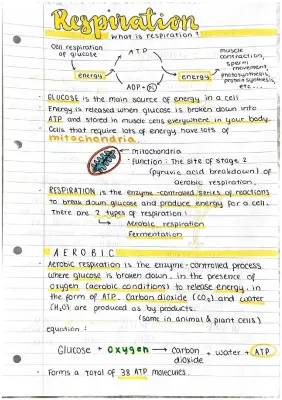 Respiration
What is respiration?
Cell respiration of glucose
energy
ATP
ADP + Pi
energy
muscle contraction, sperm movement, photosynthesis, protein synthesis, etc...
- GLUCOSE is the main source of energy in a cell
- Energy is released when glucose is broken down into
ATP and stored in muscle cells everywhere in your body.
- Cells that require lots of energy have lots of
mitochondria.
mitochondria
· Function: The site of stage 2
(pyruvic acid breakdown) of
aerobic respiration.
- RESPIRATION is the enzyme-controlled series of reactions
to break down glucose and produce energy for a cell.
There are 2 types of respiration:
Aerobic respiration
Fermentation
AEROBIC
- Aerobic respiration is the enzyme-controlled process
where glucose is broken down in the presence of
oxygen (aerobic conditions) to release energy in
the form of ATP. Carbon dioxide (CO₂) and water
(H₂O) are produced as by products.
(same in animal & plant cells)
equation:
Glucose + oxygen → carbon dioxide + water + ATP
- Forms a total of 38 ATP molecules.